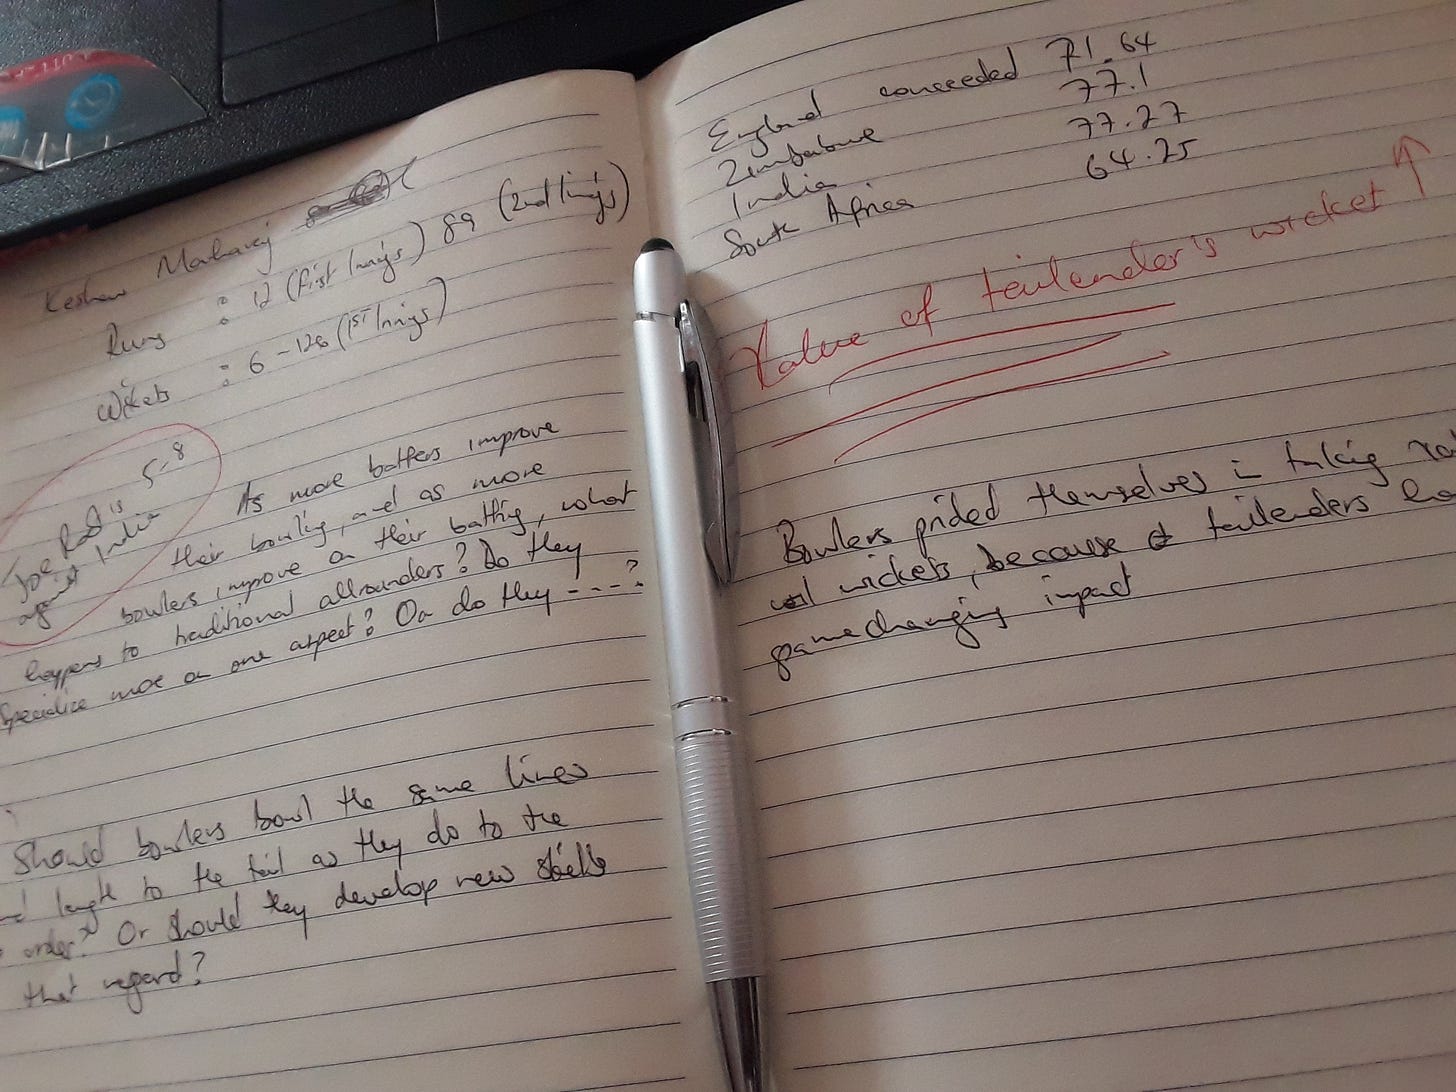 Keshav Maharaj
Runs : 12 (First Innings) 89 (2nd Innings)
Wickets : 6 - 128 (1ST Innings)
Joe Root's 5-8
against India
As more batters improve
their bowling, and as more
bowlers improve on their batting, what
happens to traditional allrounders? Do they
Specialize more on one aspect? Or do they ----?
Should bowlers bowl the same lines
length to the tail as they do to the
order? Or should they develop new skills
that regard?
England conceeded 71.64
Zimbabwe 77.1
India 77.27
South Africa 64.25
Value of tailender's wicket ↑
Bowlers prided themselves in taking
wickets, because tailenders
gamechanging impact